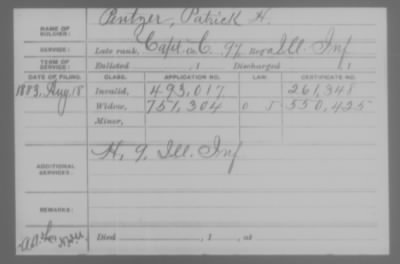 NAME OF SOLDIER: Pentzer, Patrick H.
SERVICE: Late rank, Capt. Co. C, 97 Reg't Ill. Inf
TERM OF SERVICE: Enlisted , 1 Discharged , 1
DATE OF FILING. CLASS. APPLICATION NO. LAW. CERTIFICATE NO.
1883, Aug 18 Invalid, 493,017 261,348
Widow, 751,304 0 5 550,425
Minor,
ADDITIONAL SERVICES: H, 9 Ill. Inf
REMARKS:
Died , 1 , at